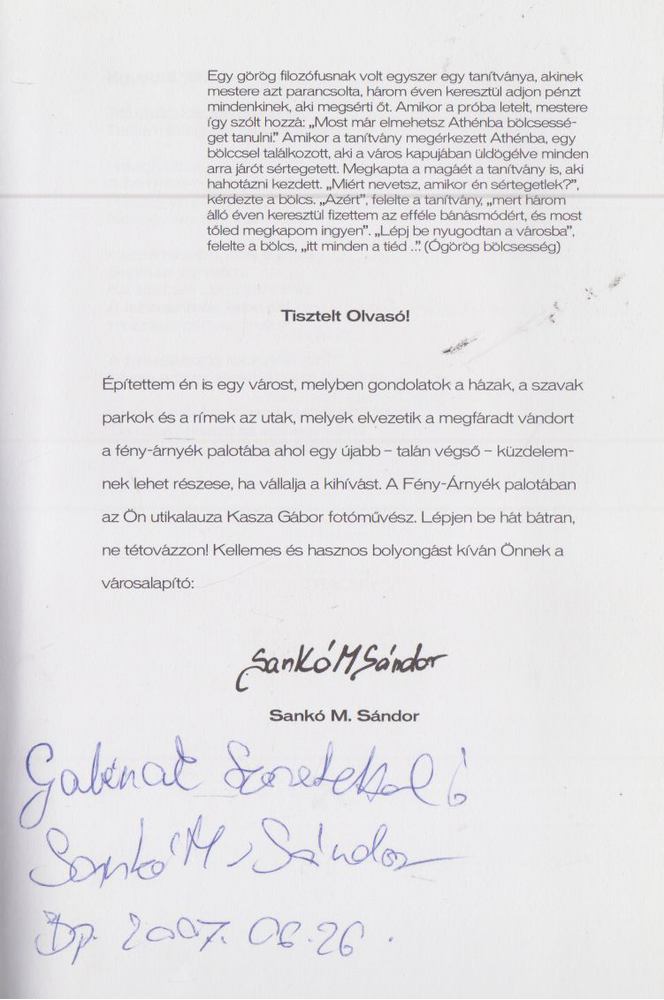 Egy görög filozófusnak volt egyszer egy tanítványa, akinek
mestere azt parancsolta, három éven keresztül adjon pénzt
mindenkinek, aki megsérti őt. Amikor a próba letelt, mestere
így szólt hozzá: „Most már elmehetsz Athénba bölcsessé-
get tanulni.” Amikor a tanítvány megérkezett Athénba, egy
bölccsel találkozott, aki a város kapujában üldögélve minden
arra járót sértegetett. Megkapta a magáét a tanítvány is, aki
hahotázni kezdett. „Miért nevetsz, amikor én sértegetlek?”,
kérdezte a bölcs. „Azért”, felelte a tanítvány, „mert három
álló éven keresztül fizettem az efféle bánásmódért, és most
tőled megkapom ingyen”. „Lépj be nyugodtan a városba”,
felelte a bölcs, „itt minden a tiéd ..” (Ógörög bölcsesség)
Tisztelt Olvasó!
Építettem én is egy várost, melyben gondolatok a házak, a szavak
parkok és a rímek az utak, melyek elvezetik a megfáradt vándort
a fény-árnyék palotába ahol egy újabb – talán végső – küzdelem-
nek lehet részese, ha vállalja a kihívást. A Fény-Árnyék palotában
az Ön utikalauza Kasza Gábor fotóművész. Lépjen be hát bátran,
ne tétovázzon! Kellemes és hasznos bolyongást kíván Önnek a
városalapító:
Sankó M. Sándor
Sankó M. Sándor
Szeretettel
Sankó M. Sándor
Bp. 2007. 06. 26.